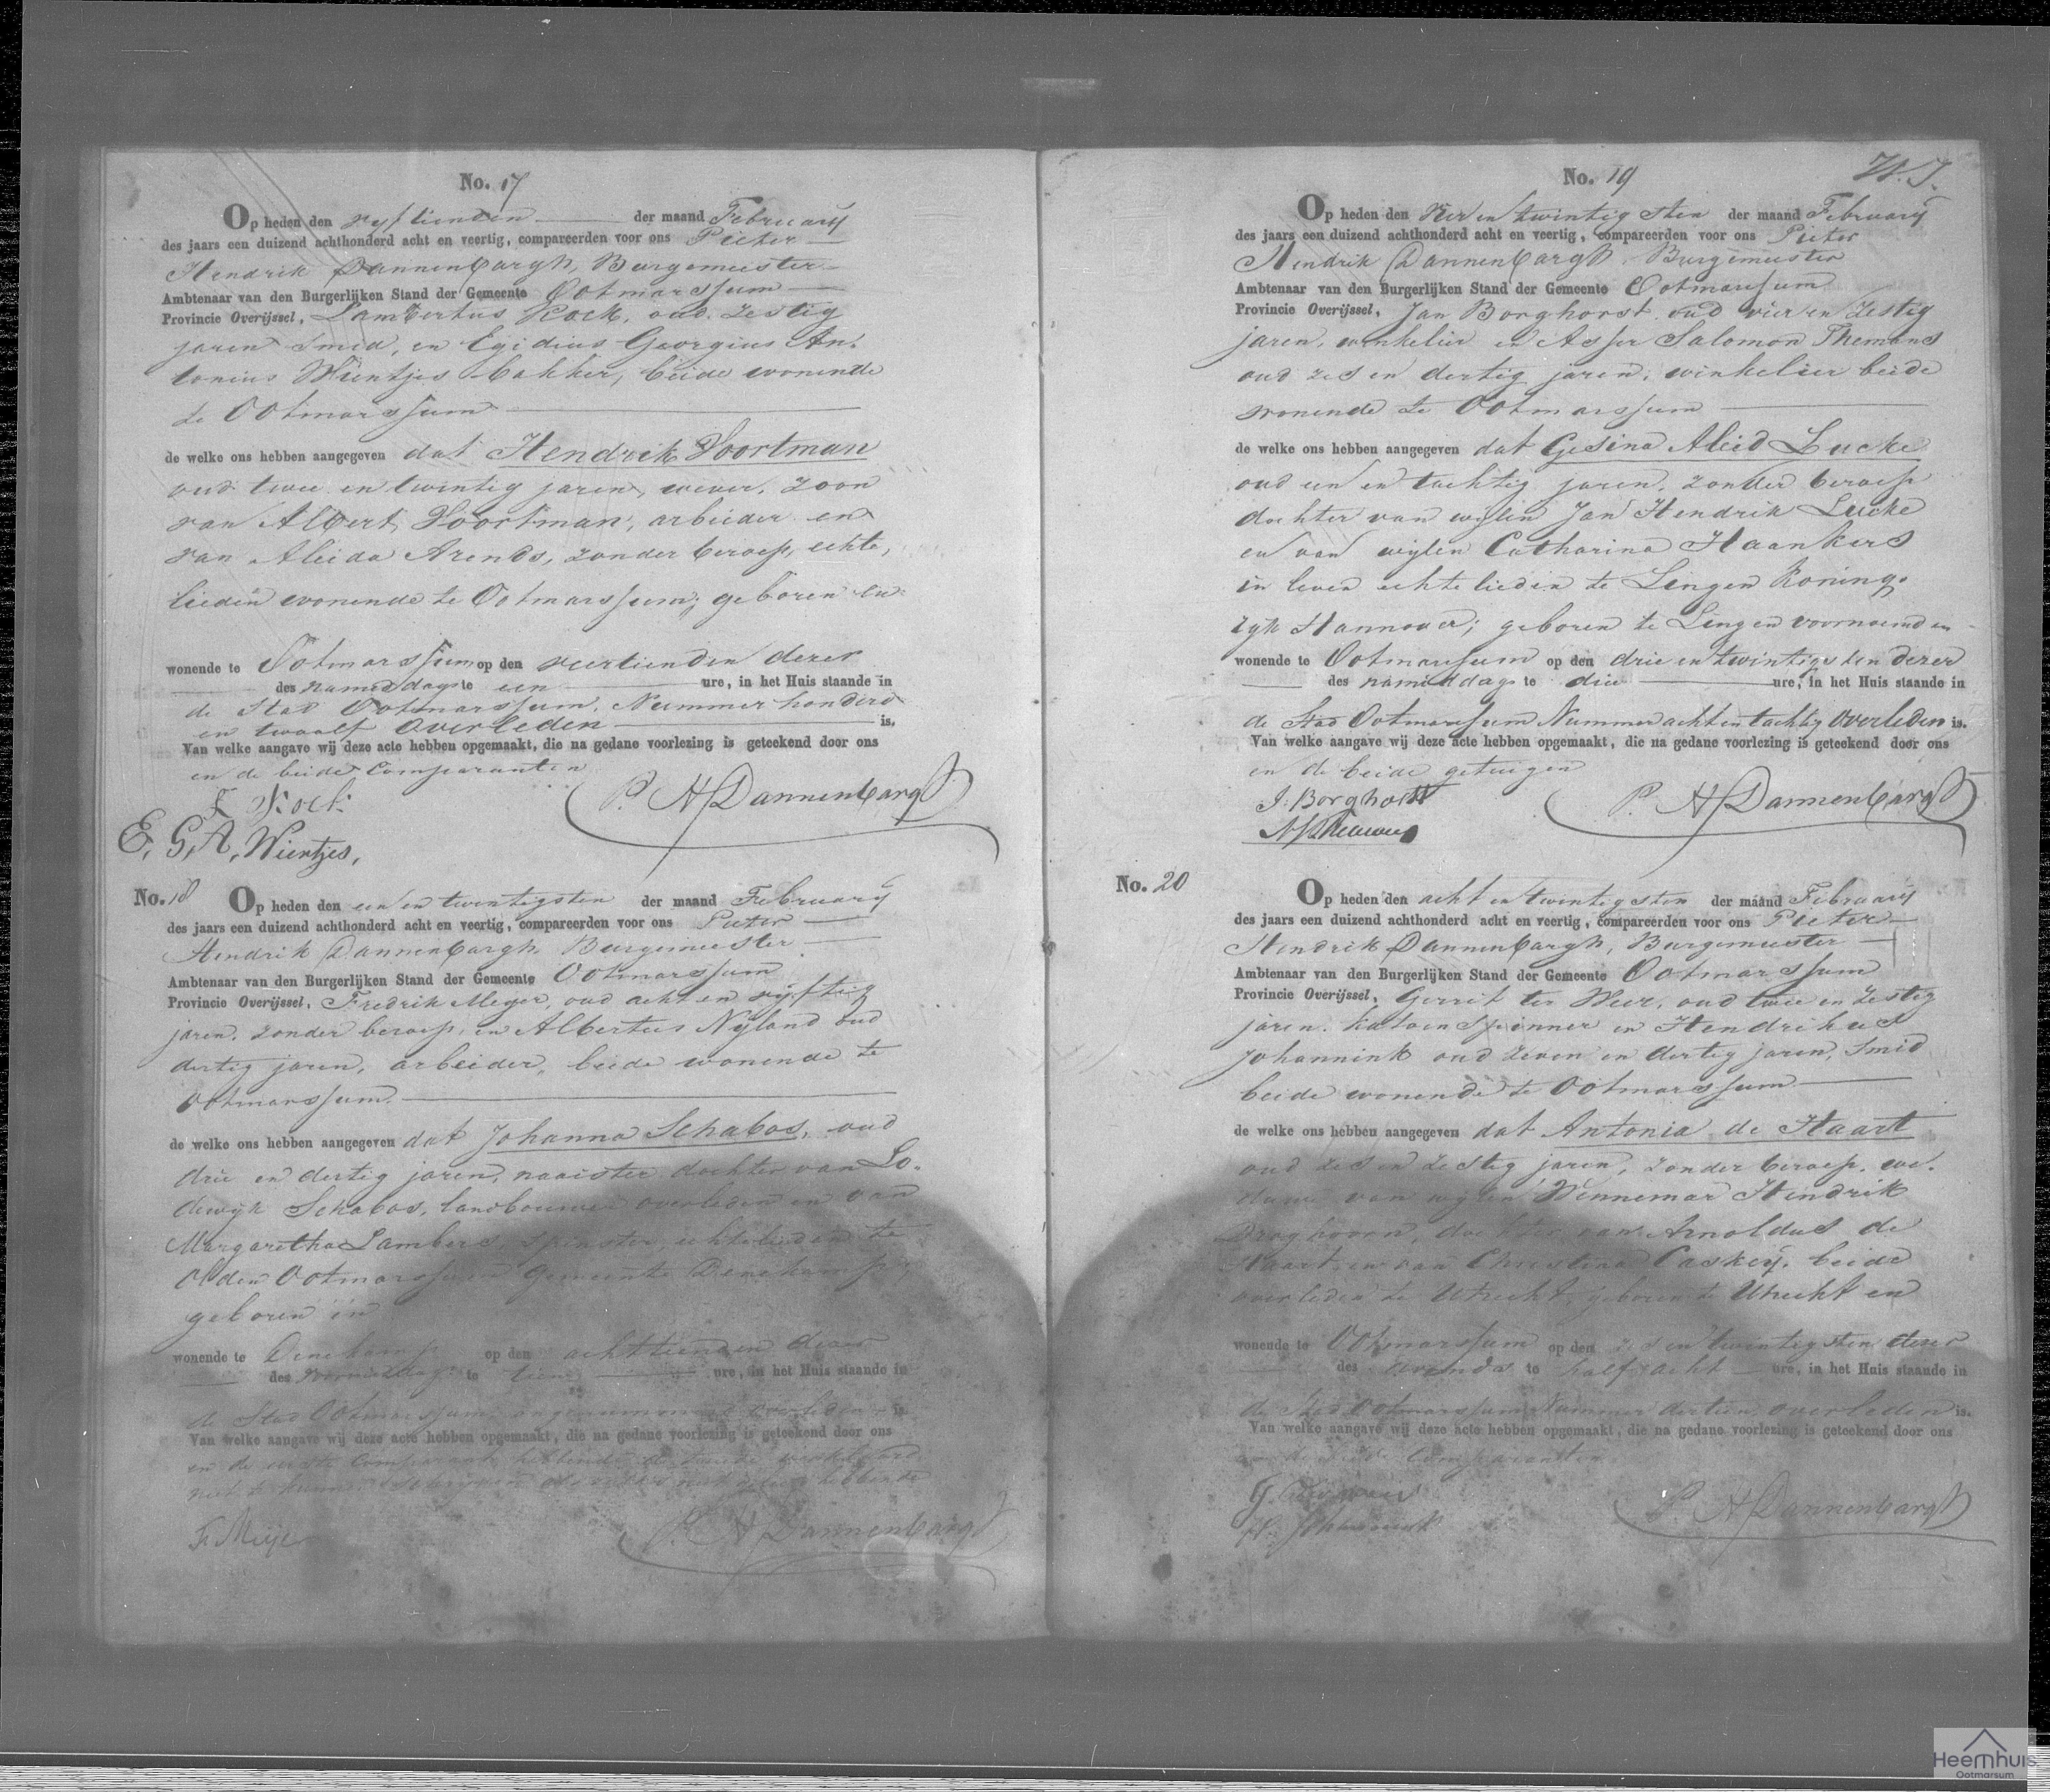 No. 17
Op heden den vyftienden der maand February
des jaars een duizend achthonderd acht en veertig, compareerden voor ons Pieter
Hendrik Dannenbargh, Burgemeester
Ambtenaar van den Burgerlijken Stand der Gemeente Ootmarssum
Provincie Overijssel, Lambertus Kock, oud zestig
jaren smid, en Egidius Georgius An,
tonius Wientjes bakker, beide wonende
te Ootmarssum
de welke ons hebben aangegeven dat Hendrik Voortman
oud twee en twintig jaren, wever, zoon
van Albert Voortman, arbeider en
van Aleida Arends, zonder beroep, echte,
lieden wonende te Ootmarssum; geboren en
wonende te Ootmarssum op den veertienden dezer
des namiddags te een ure, in het Huis staande in
de Stad Ootmarssum, Nummer honderd
en twaalf overleden is.
Van welke aangave wij deze acte hebben opgemaakt, die na gedane voorlezing is geteekend door ons
en de beide Comparanten
L Kock
P. H Dannenbargh
E. G. A. Wientjes,
No. 18
Op heden den een en twintigsten der maand February
des jaars een duizend achthonderd acht en veertig, compareerden voor ons Pieter
Hendrik Dannenbargh, Burgemeester
Ambtenaar van den Burgerlijken Stand der Gemeente Ootmarssum
Provincie Overijssel, Fredrik Meyer, oud acht en vyftig
jaren, zonder beroep, en Albertus Nyland oud
dertig jaren, arbeider, beide wonende te
Ootmarssum.
de welke ons hebben aangegeven dat Johanna Schabos, oud
drie en dertig jaren, naaister, dochter van Lo-
dewyk Schabos, landbouwer overleden en van
Margaretha Lambers spinster, echtelieden te
Olden Ootmarssum Gemeente Denekamp
geboren in
wonende te Denekamp op den achttienden dezer
des voormiddags te tien ure, in het Huis staande in
de Stad Ootmarssum, ongenummerd overleden is.
Van welke aangave wij deze acte hebben opgemaakt, die na gedane voorlezing is geteekend door ons
en de eerste Comparant hebbende de tweede verklaard
niet te kunnen schryven als zulks niet geleerd hebbende
F. Meije
P. H Dannenbargh
No. 19
W. J.
Op heden den Vier en twintigsten der maand February
des jaars een duizend achthonderd acht en veertig, compareerden voor ons Pieter
Hendrik Dannenbargh, Burgemeester
Ambtenaar van den Burgerlijken Stand der Gemeente Ootmarssum
Provincie Overijssel, Jan Borghorst oud vier en zestig
jaren, winkelier en Asser Salomon Themans
oud zes en dertig jaren, winkelier beide
wonende te Ootmarssum
de welke ons hebben aangegeven dat Gesina Aleid Lucke
oud een en tachtig jaren, zonder beroep
dochter van wylen Jan Hendrik Lucke
en van wylen Catharina Haankers
in leven echtelieden te Lingen Koning-
ryk Hannover; geboren te Lingen voornoemd en
wonende te Ootmarssum op den drie en twintigsten dezer
des namiddags te drie ure, in het Huis staande in
de Stad Ootmarssum Nummer acht en tachtig overleden is.
Van welke aangave wij deze acte hebben opgemaakt, die na gedane voorlezing is geteekend door ons
en de beide getuigen
J. Borghorst
P. H Dannenbargh
No. 20
Op heden den acht en twintigsten der maand February
des jaars een duizend achthonderd acht en veertig, compareerden voor ons Pieter
Hendrik Dannenbargh, Burgemeester
Ambtenaar van den Burgerlijken Stand der Gemeente Ootmarssum
Provincie Overijssel, Gerrit ter Weer, oud twee en zestig
jaren, katoenspinner en Hendrikus
Johannink oud zeven en dertig jaren, smid
beide wonende te Ootmarssum
de welke ons hebben aangegeven dat Antonia de Haart
oud zes en zestig jaren, zonder beroep, we-
duwe van wylen Wennemar Hendrik
dochter van Arnoldus de
Haart en van Christina Caskey, beide
overleden te Utrecht, geboren te Utrecht en
wonende te Ootmarssum op den zes en twintigsten dezer
des avonds te half acht ure, in het Huis staande in
de Stad Ootmarssum Nummer dertien overleden is.
Van welke aangave wij deze acte hebben opgemaakt, die na gedane voorlezing is geteekend door ons
en de beide Comparanten
H. Johannink
P. H Dannenbargh
Heemhuis
Ootmarsum